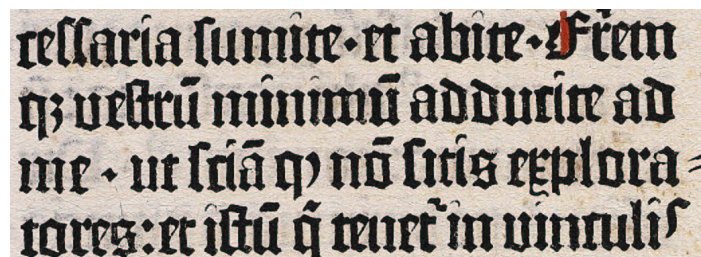 cessaria sumite·et abite·Fr̄em
qꝫ vestrū minimū adducite ad
me · ut sciā ꝙ nō sitis explora⸗
tores: et istū q̄ tenet᷑ in vinculis